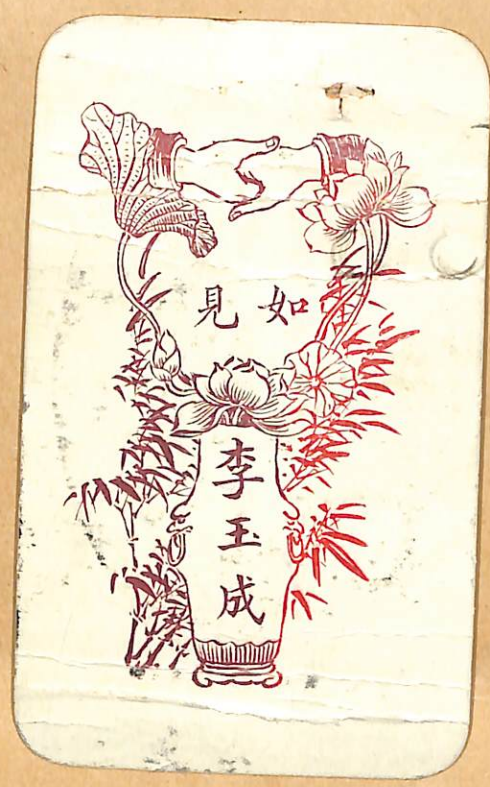 如見
李玉成